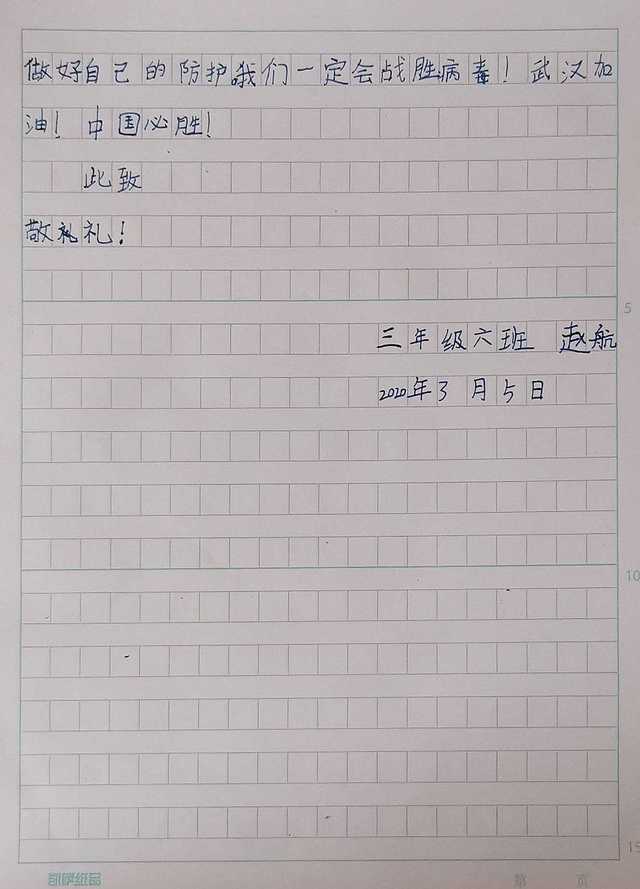 做好自己的防护我们一定会战胜病毒！武汉加
油！中国必胜！
此致
敬礼礼！
5
三年级六班 赵航
2020年3月5日
10
15
凯萨纸品
第 页